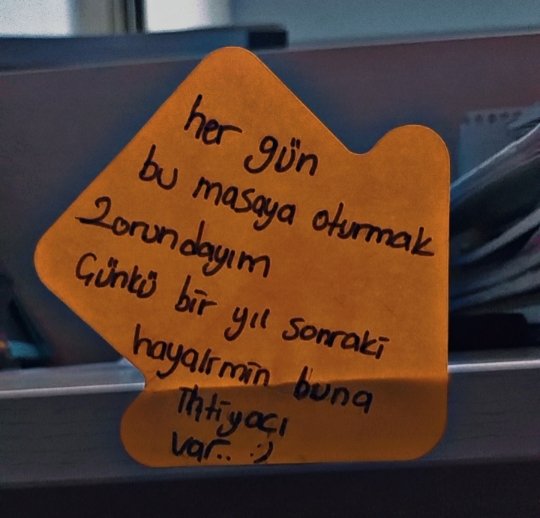 her gün
bu masaya oturmak
Zorundayım
Çünkü bir yıl sonraki
hayalimin buna
ihtiyacı
var.. :)